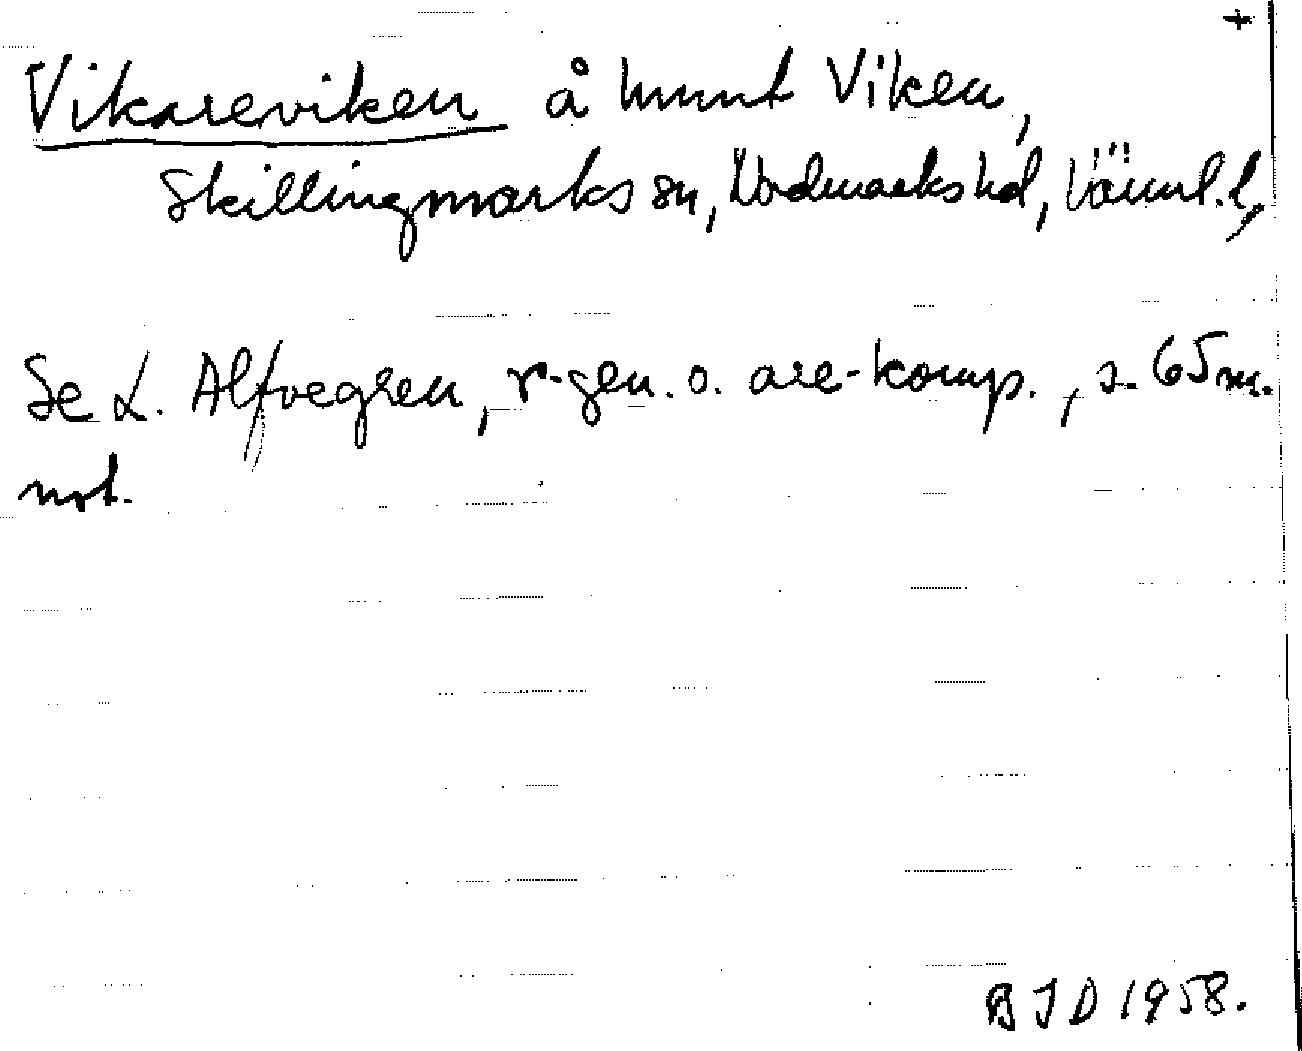 +
Vikareviken å hmnt Viken,
Skillingmarks sn, Nordmarks hd, Värml. l,
Se L. Alfvegren, r-gen. o. are-komp., s. 65 m.
not.
BJD 1958.